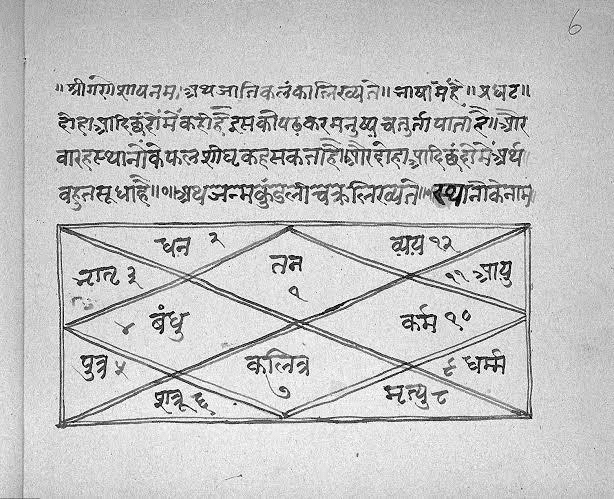 6
॥ श्रीगणेशायनमः अथजातिकलंकालिख्यते॥ भाषामेंहै॥ अथट॥
दोहाआदिछंदोंमेंकहीहै इसकोपढकरमनुष्यचतुर्तापाताहै॥ और
बारहस्थानोंकेफलशीघ्रकहसकताहै॥औरदोहाआदिछंदोंमेंअर्थ
बहुतसूधाहै॥०॥अथजन्मकुंडलीचक्रलिख्यते॥ स्थानोंकेनाम
धन २
तन १
व्यय १२
भ्रात ३
११ आयु
४ बंधु
कर्म १०
पुत्र ५
कलित्र ७
९ धर्म्म
शत्रू ६
मृत्यु ८